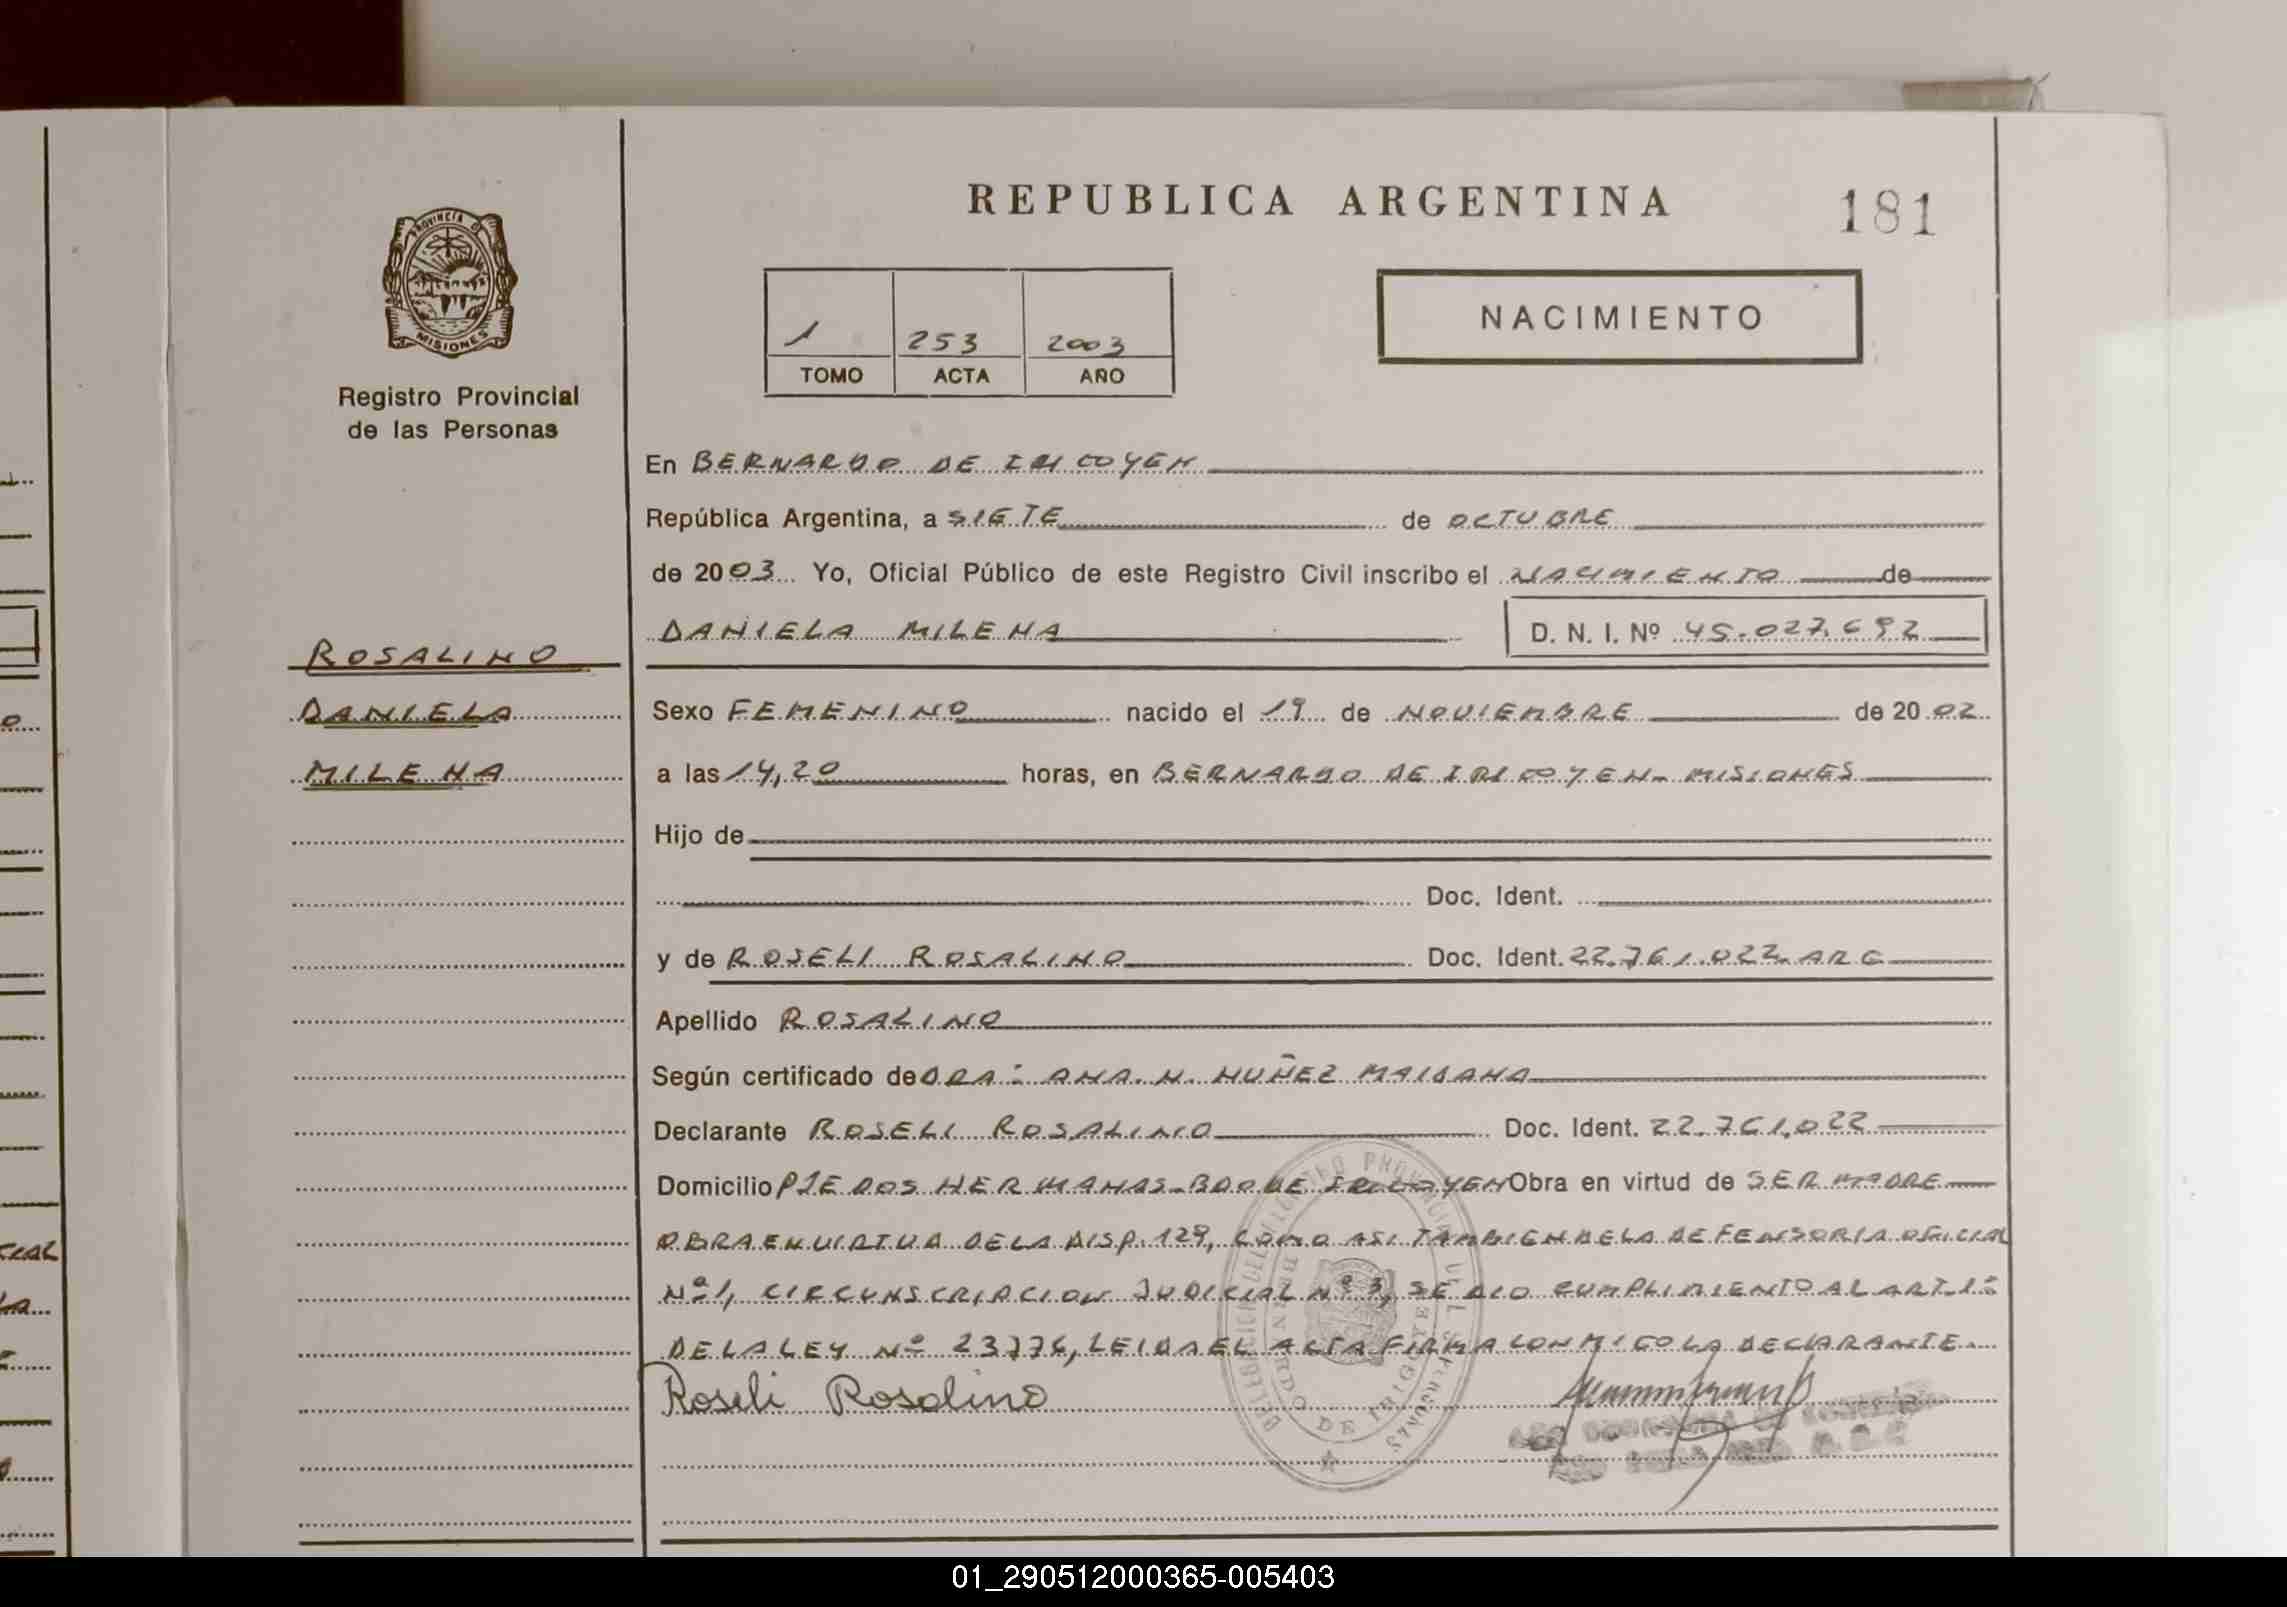 REPUBLICA ARGENTINA
181
PROVINCIA DE MISIONES
Registro Provincial
de las Personas
1 253 2003
TOMO ACTA AÑO
NACIMIENTO
En BERNARDO DE IRIGOYEN
República Argentina, a SIETE de OCTUBRE
de 2003 Yo, Oficial Público de este Registro Civil inscribo el NACIMIENTO de
DANIELA MILENA D. N. I. Nº 45.027.692
ROSALINO
DANIELA
MILENA
Sexo FEMENINO nacido el 19 de NOVIEMBRE de 2002
a las 14,20 horas, en BERNARDO DE IRIGOYEN - MISIONES
Hijo de
Doc. Ident.
y de ROSELI ROSALINO Doc. Ident. 22.761.022 ARG
Apellido ROSALINO
Según certificado de DRA: ANA. N. NUÑEZ MAIDANA
Declarante ROSELI ROSALINO Doc. Ident. 22.761.022
Domicilio PJE DOS HERMANAS - BDO DE IRIGOYEN Obra en virtud de SER MADRE
OBRA EN VIRTUD DE LA DISP. 129, COMO ASI TAMBIEN DE LA DEFENSORIA OFICIAL
Nº 1, CIRCUNSCRIPCION JUDICIAL Nº 3, SE DIO CUMPLIMIENTO AL ART. 1º
DE LA LEY Nº 23776, LEIDA EL ACTA FIRMA CONMIGO LA DECLARANTE.
Roseli Rosalino
DELEGACION DEL REGISTRO PROVINCIAL DE LAS PERSONAS
BERNARDO DE IRIGOYEN
01_290512000365-005403